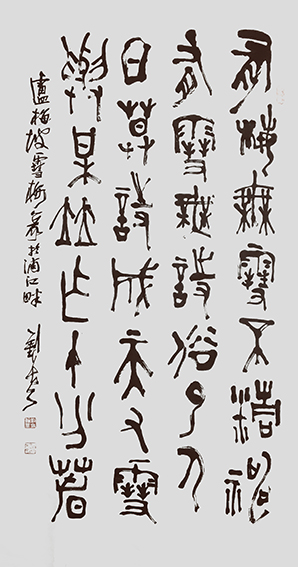 有梅無雪不精神
有雪無詩俗了人
日莫詩成天又雪
與梅並作十分春
盧梅坡雪梅 於浦江畔 劉